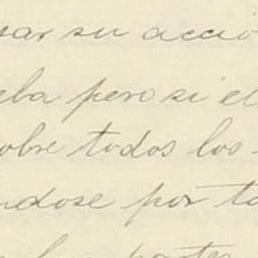 sar su acció
eba pero si el
sobre todos los
ndose por to
partes